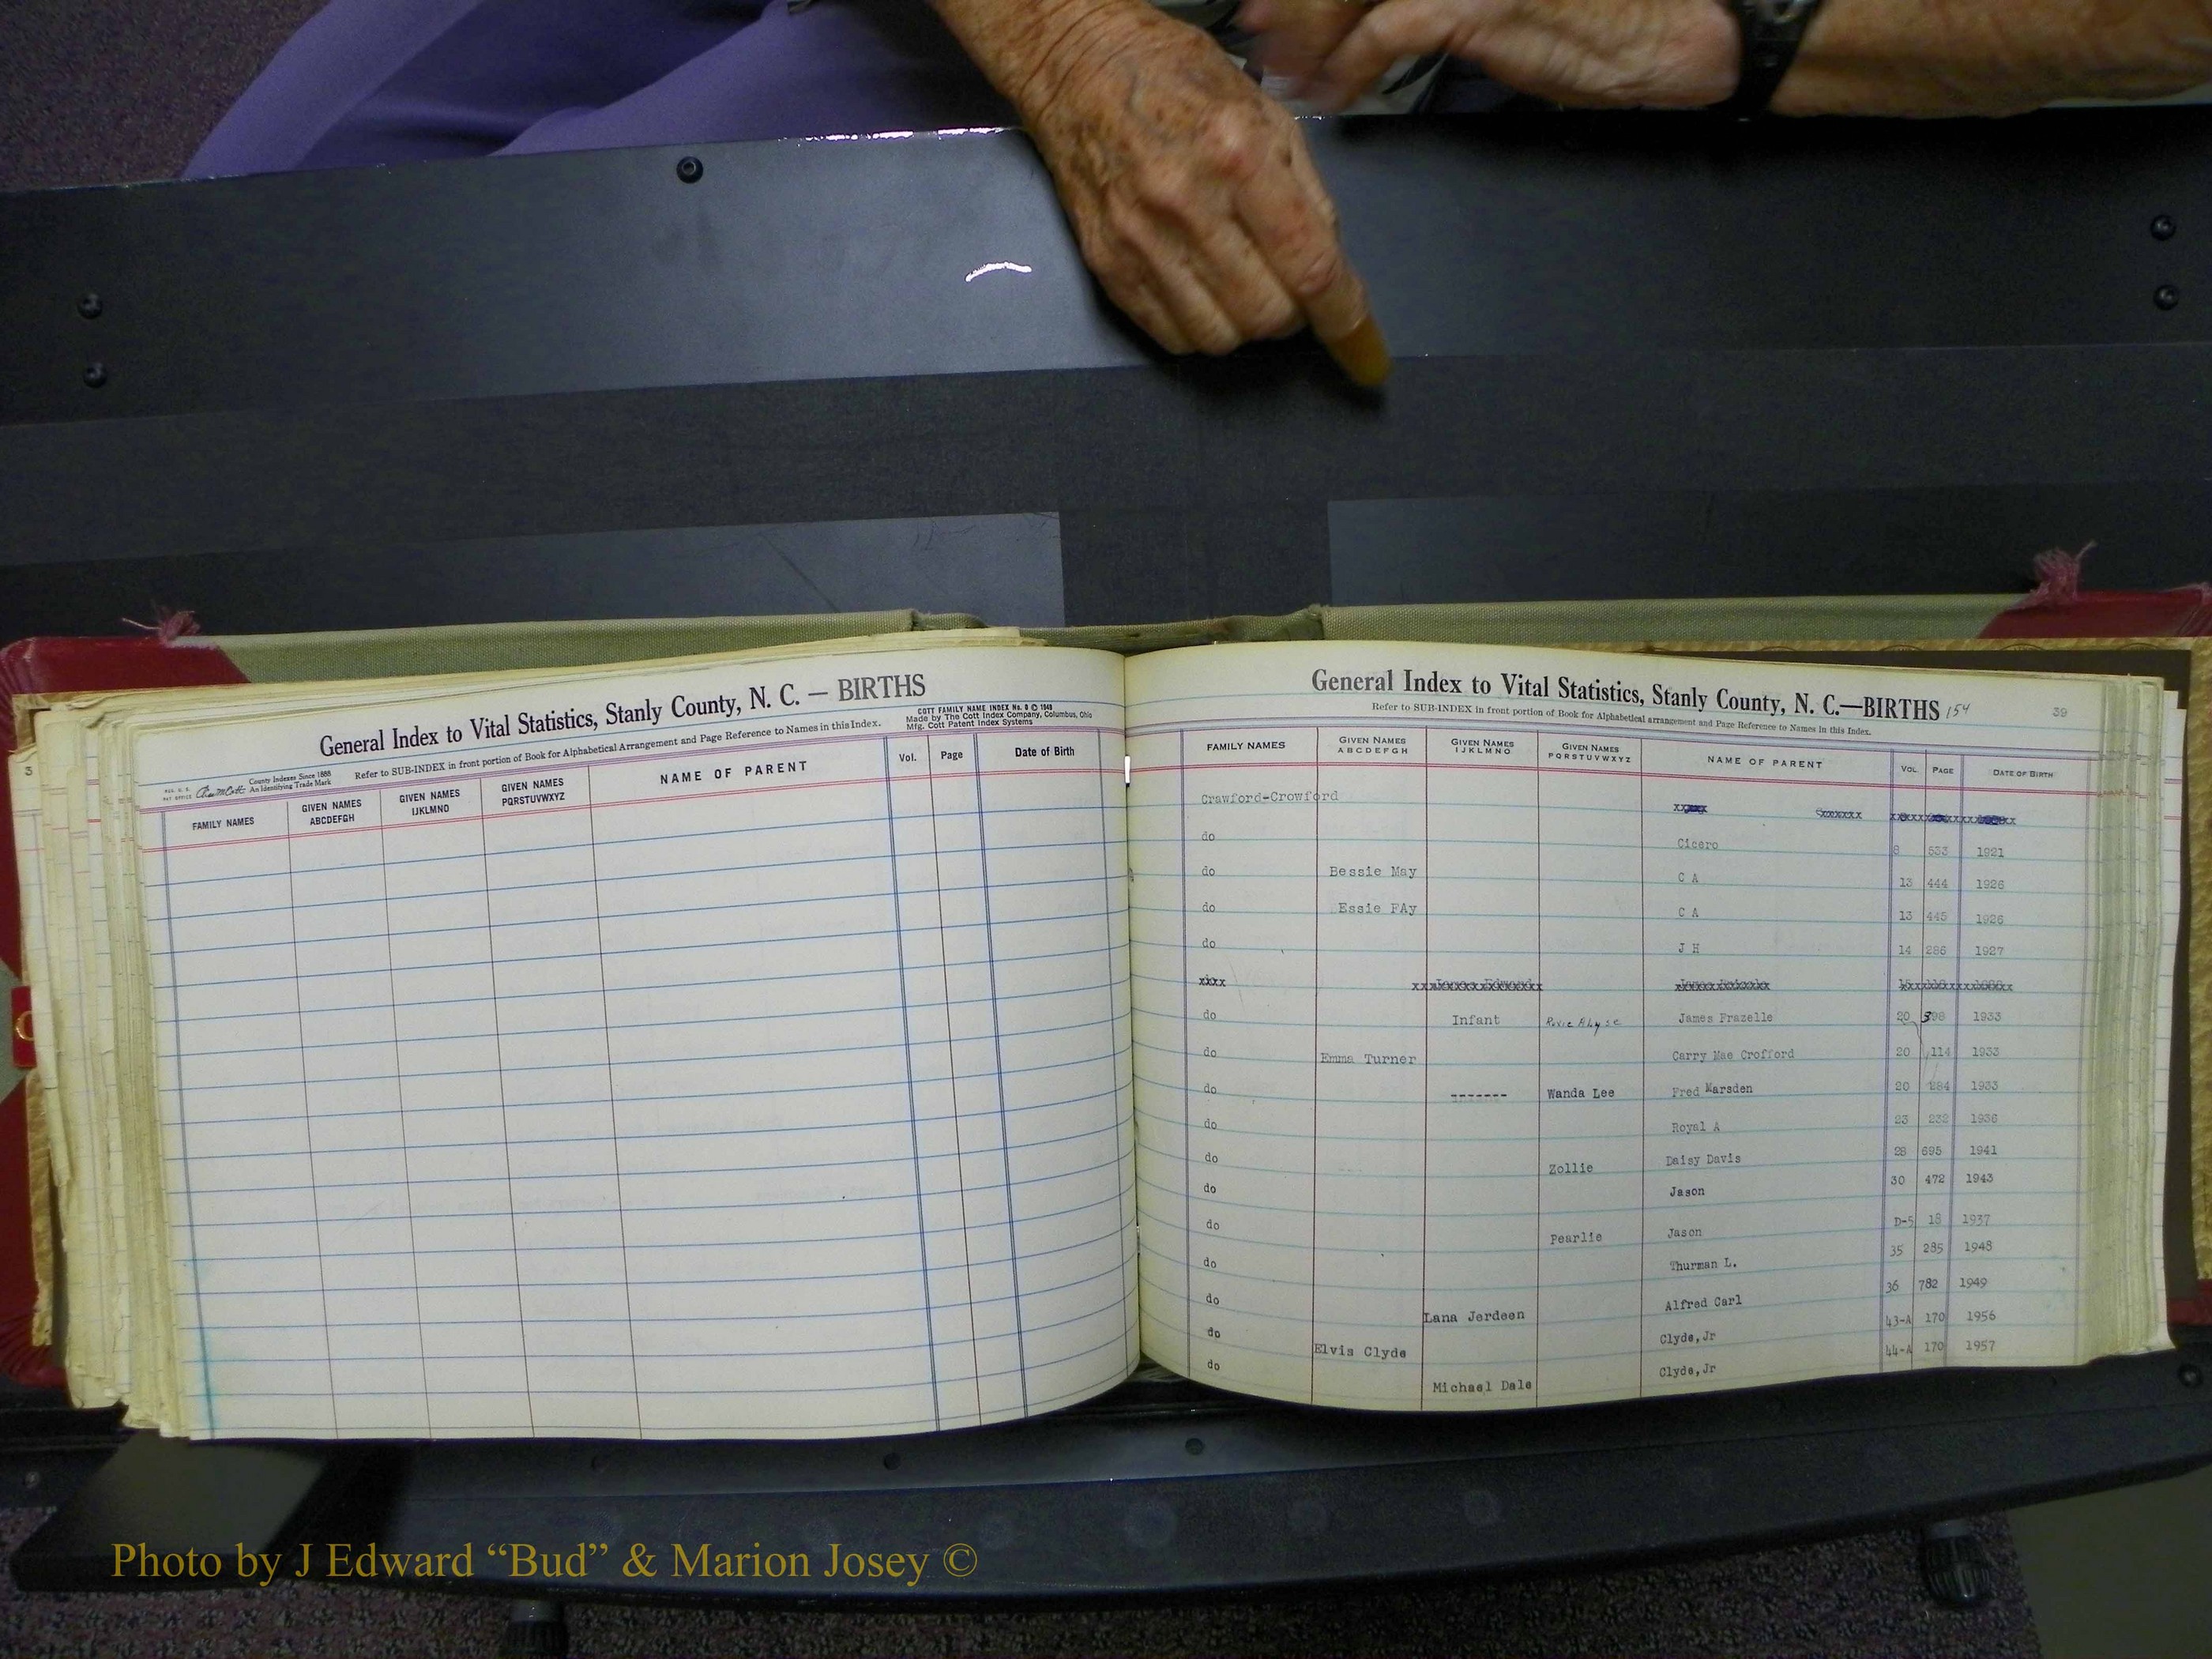 General Index to Vital Statistics, Stanly County, N. C. — BIRTHS
COTT FAMILY NAME INDEX No. 8 © 1949
Made by The Cott Index Company, Columbus, Ohio
Mfg. Cott Patent Index Systems
County Indexes Since 1888
An Identifying Trade Mark
Refer to SUB-INDEX in front portion of Book for Alphabetical Arrangement and Page Reference to Names in this Index.
FAMILY NAMES GIVEN NAMES ABCDEFGH GIVEN NAMES IJKLMNO GIVEN NAMES PQRSTUVWXYZ NAME OF PARENT Vol. Page Date of Birth
General Index to Vital Statistics, Stanly County, N. C.—BIRTHS 154 39
Refer to SUB-INDEX in front portion of Book for Alphabetical arrangement and Page Reference to Names in this Index.
FAMILY NAMES GIVEN NAMES ABCDEFGH GIVEN NAMES IJKLMNO GIVEN NAMES PQRSTUVWXYZ NAME OF PARENT VOL. PAGE DATE OF BIRTH
Crawford-Crowford
do Cicero 8 533 1921
do Bessie May C A 13 444 1926
do Essie FAy C A 13 445 1926
do J H 14 286 1927
xxxx
do Infant James Frazelle 20 398 1933
do Emma Turner Carry Mae Crofford 20 114 1933
do ------- Wanda Lee Fred Marsden 20 284 1933
do Royal A 23 232 1936
do Zollie Daisy Davis 28 695 1941
do Jason 30 472 1943
do Pearlie Jason D-5 18 1937
do Thurman L. 35 285 1948
do Lana Jerdeen Alfred Carl 36 782 1949
do Elvis Clyde Clyde,Jr 43-A 170 1956
do Michael Dale Clyde,Jr 44-A 170 1957
Photo by J Edward “Bud” & Marion Josey ©